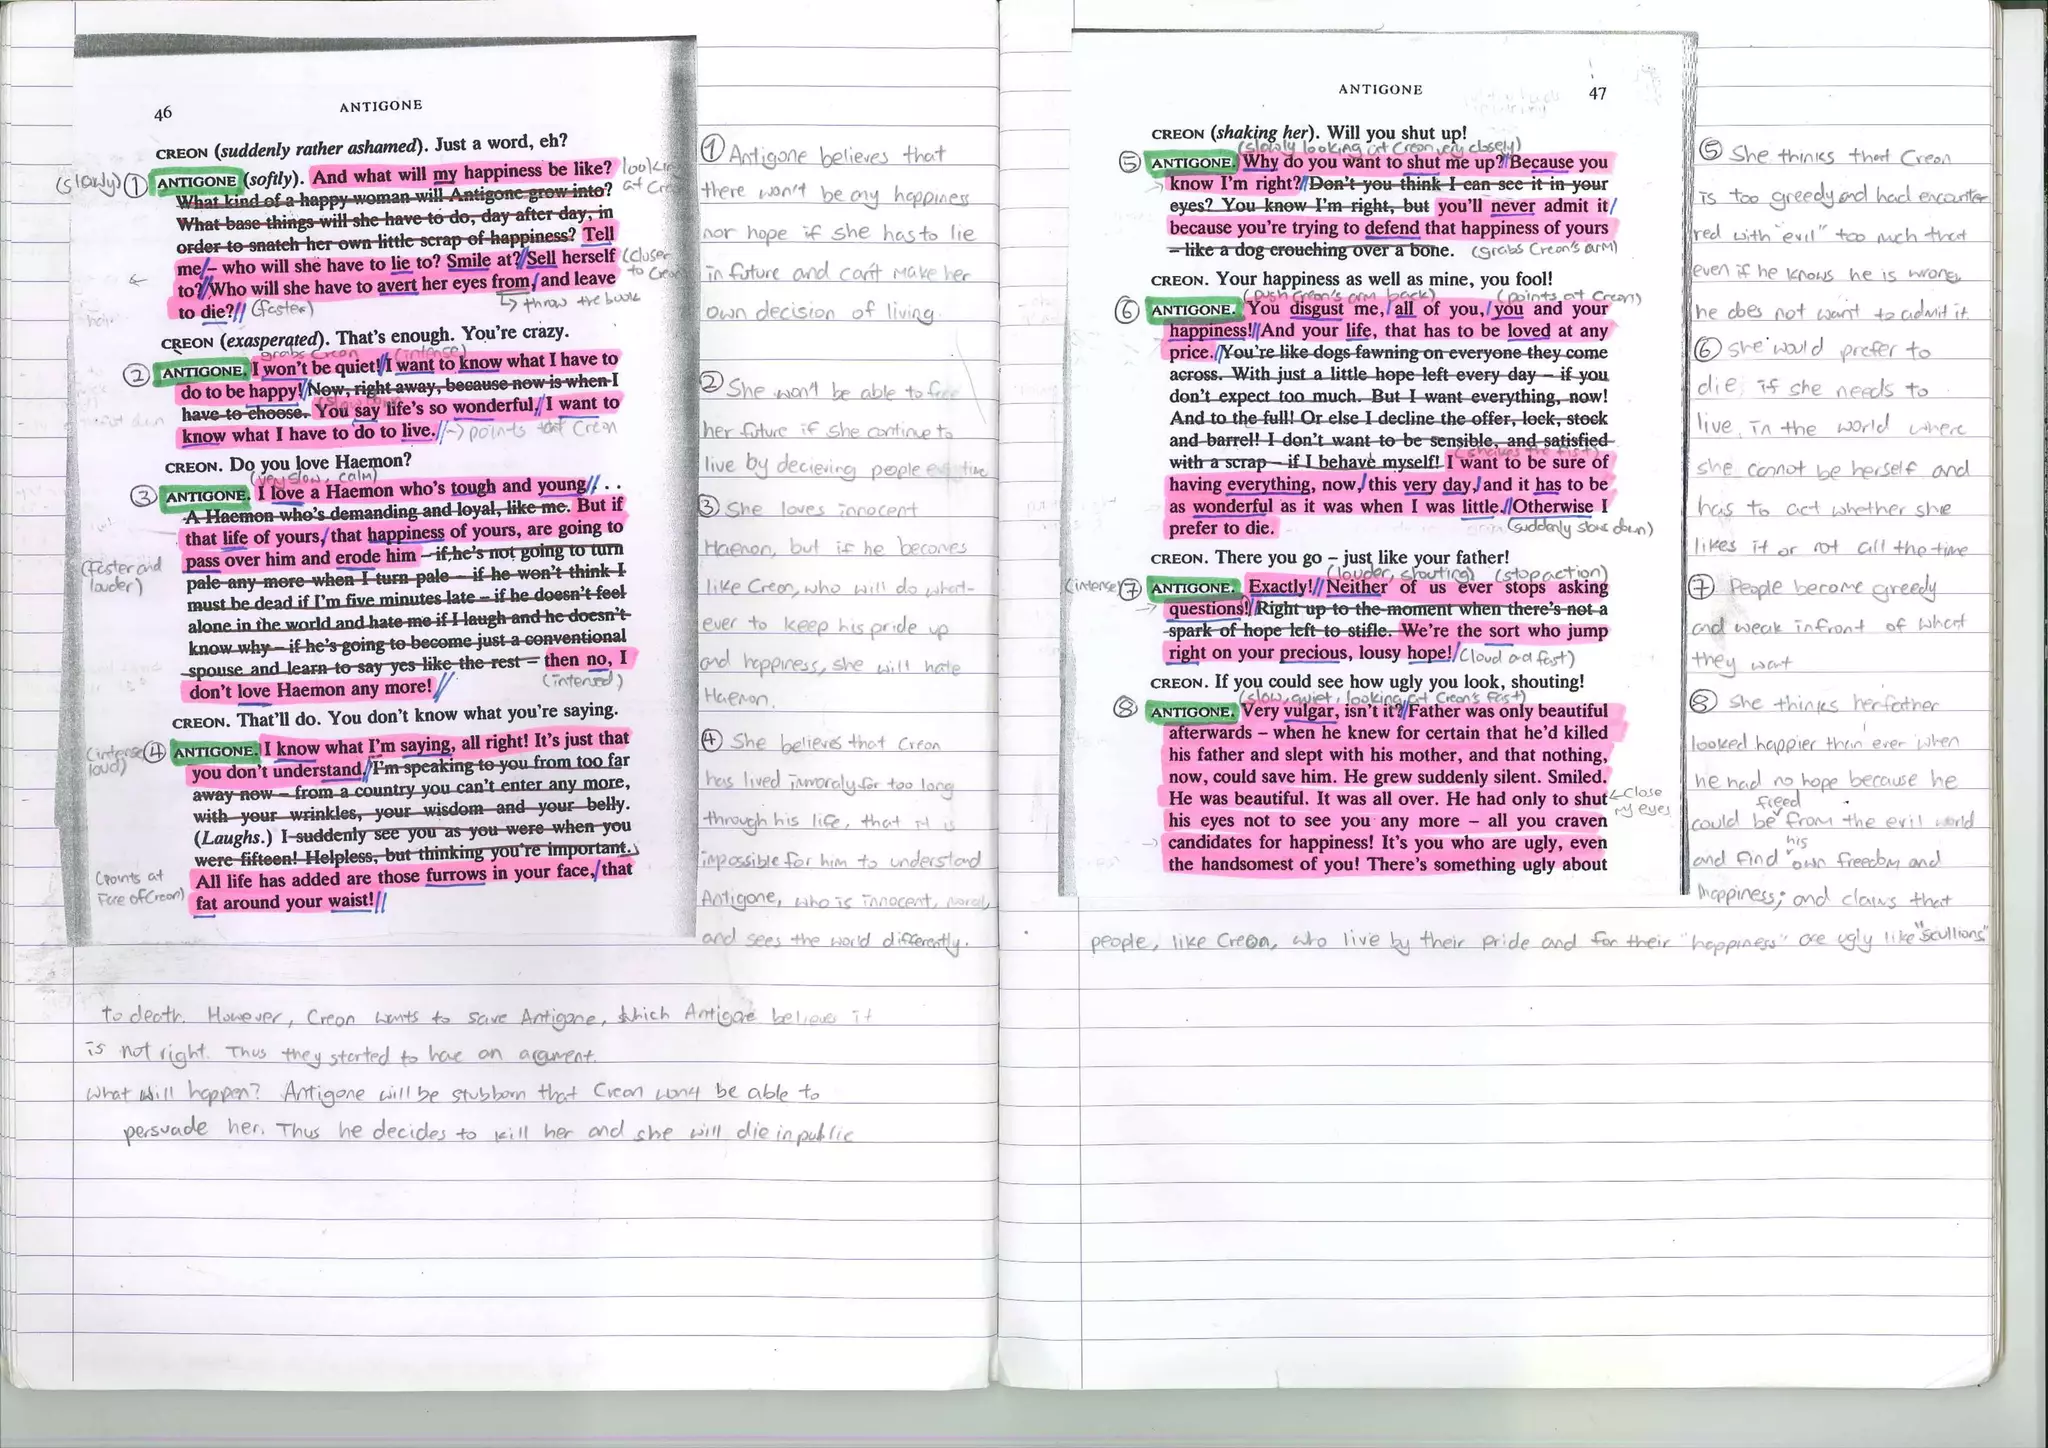 46
ANTIGONE
CREON (suddenly rather ashamed). Just a word, eh?
(slowly) ① ANTIGONE (softly). And what will my happiness be like? looking
What kind of a happy woman will Antigone grow into? at Creon
What base things will she have to do, day after day, in
order to snatch her own little scrap of happiness? Tell
me/– who will she have to lie to? Smile at?//Sell herself (closer
to?//Who will she have to avert her eyes from,/and leave to Creon
to die?// (faster) ↳ throw the book
CREON (exasperated). That's enough. You're crazy.
grabs Creon (intense)
② ANTIGONE. I won't be quiet!//I want to know what I have to
do to be happy!//Now, right away, because now is when I
have to choose. You say life's so wonderful,//I want to
know what I have to do to live.// → points at Creon
CREON. Do you love Haemon?
(very slow, calm)
③ ANTIGONE. I love a Haemon who's tough and young//. . .
A Haemon who's demanding and loyal, like me. But if
that life of yours,/that happiness of yours, are going to
(faster and pass over him and erode him – if he's not going to turn
louder) pale any more when I turn pale – if he won't think I
must be dead if I'm five minutes late – if he doesn't feel
alone in the world and hate me if I laugh and he doesn't
know why – if he's going to become just a conventional
spouse and learn to say yes like the rest – then no, I
don't love Haemon any more!// (intensed)
CREON. That'll do. You don't know what you're saying.
(intense ④ ANTIGONE. I know what I'm saying, all right! It's just that
loud) you don't understand./I'm speaking to you from too far
away now – from a country you can't enter any more,
with your wrinkles, your wisdom and your belly.
(Laughs.) I suddenly see you as you were when you
were fifteen! Helpless, but thinking you're important.
(points at All life has added are those furrows in your face,/that
face of Creon) fat around your waist!//
① Antigone believes that
there won't be any happiness
nor hope if she has to lie
in future and can't make her
own decision of living.
② She won't be able to face
her future if she continue to
live by decieving people
③ She loves innocent
Haemon, but if he becomes
like Creon, who will do what-
ever to keep his pride up
and happiness, she will hate
Haemon.
④ She believes that Creon
has lived inmoraly for too long
through his life, that it is
impossible for him to understand
Antigone, who is innocent, moral,
and sees the world differently.
to death. However, Creon wants to save Antigone, which Antigone believes it
is not right. Thus they started to have an argument.
What will happen? Antigone will be stubborn that Creon won't be able to
persuade her. Thus he decides to kill her and she will die in public
ANTIGONE
47
CREON (shaking her). Will you shut up!
(slowly looking at Creon, very closely)
⑤ ANTIGONE. Why do you want to shut me up?//Because you
know I'm right?//Don't you think I can see it in your
eyes? You know I'm right, but you'll never admit it/
because you're trying to defend that happiness of yours
– like a dog crouching over a bone. (grabs Creon's arm)
CREON. Your happiness as well as mine, you fool!
(push Creon's arm back) (points at Creon)
⑥ ANTIGONE. You disgust me,/all of you,/you and your
happiness!//And your life, that has to be loved at any
price.//You're like dogs fawning on everyone they come
across. With just a little hope left every day – if you
don't expect too much. But I want everything, now!
And to the full! Or else I decline the offer, lock, stock
and barrel! I don't want to be sensible, and satisfied
with a scrap – if I behave myself! I want to be sure of
having everything, now,/this very day,/and it has to be
as wonderful as it was when I was little.//Otherwise I
prefer to die. (suddenly slows down)
CREON. There you go – just like your father!
(louder, shouting) (stop action)
(intense) ⑦ ANTIGONE. Exactly!//Neither of us ever stops asking
questions!//Right up to the moment when there's not a
spark of hope left to stifle. We're the sort who jump
right on your precious, lousy hope!/ (loud and fast)
CREON. If you could see how ugly you look, shouting!
(slow, quiet, looking at Creon's face)
⑧ ANTIGONE. Very vulgar, isn't it?//Father was only beautiful
afterwards – when he knew for certain that he'd killed
his father and slept with his mother, and that nothing,
now, could save him. He grew suddenly silent. Smiled.
He was beautiful. It was all over. He had only to shut ← close
his eyes not to see you any more – all you craven my eyes
candidates for happiness! It's you who are ugly, even
the handsomest of you! There's something ugly about
⑤ She thinks that Creon
is too greedy and had encounter-
red with "evil" too much that
even if he knows he is wrong,
he does not want to admit it.
⑥ She would prefer to
die, if she needs to
live in the world where
she cannot be herself and
has to act whether she
likes it or not all the time
⑦ People become greedy
and weak infront of what
they want
⑧ She thinks her father
looked happier than ever when
he had no hope because he
could be freed from the evil world
and find his own freedom and
happiness; and claims that
people, like Creon, who live by their pride and for their "happiness" are ugly like "scullions"